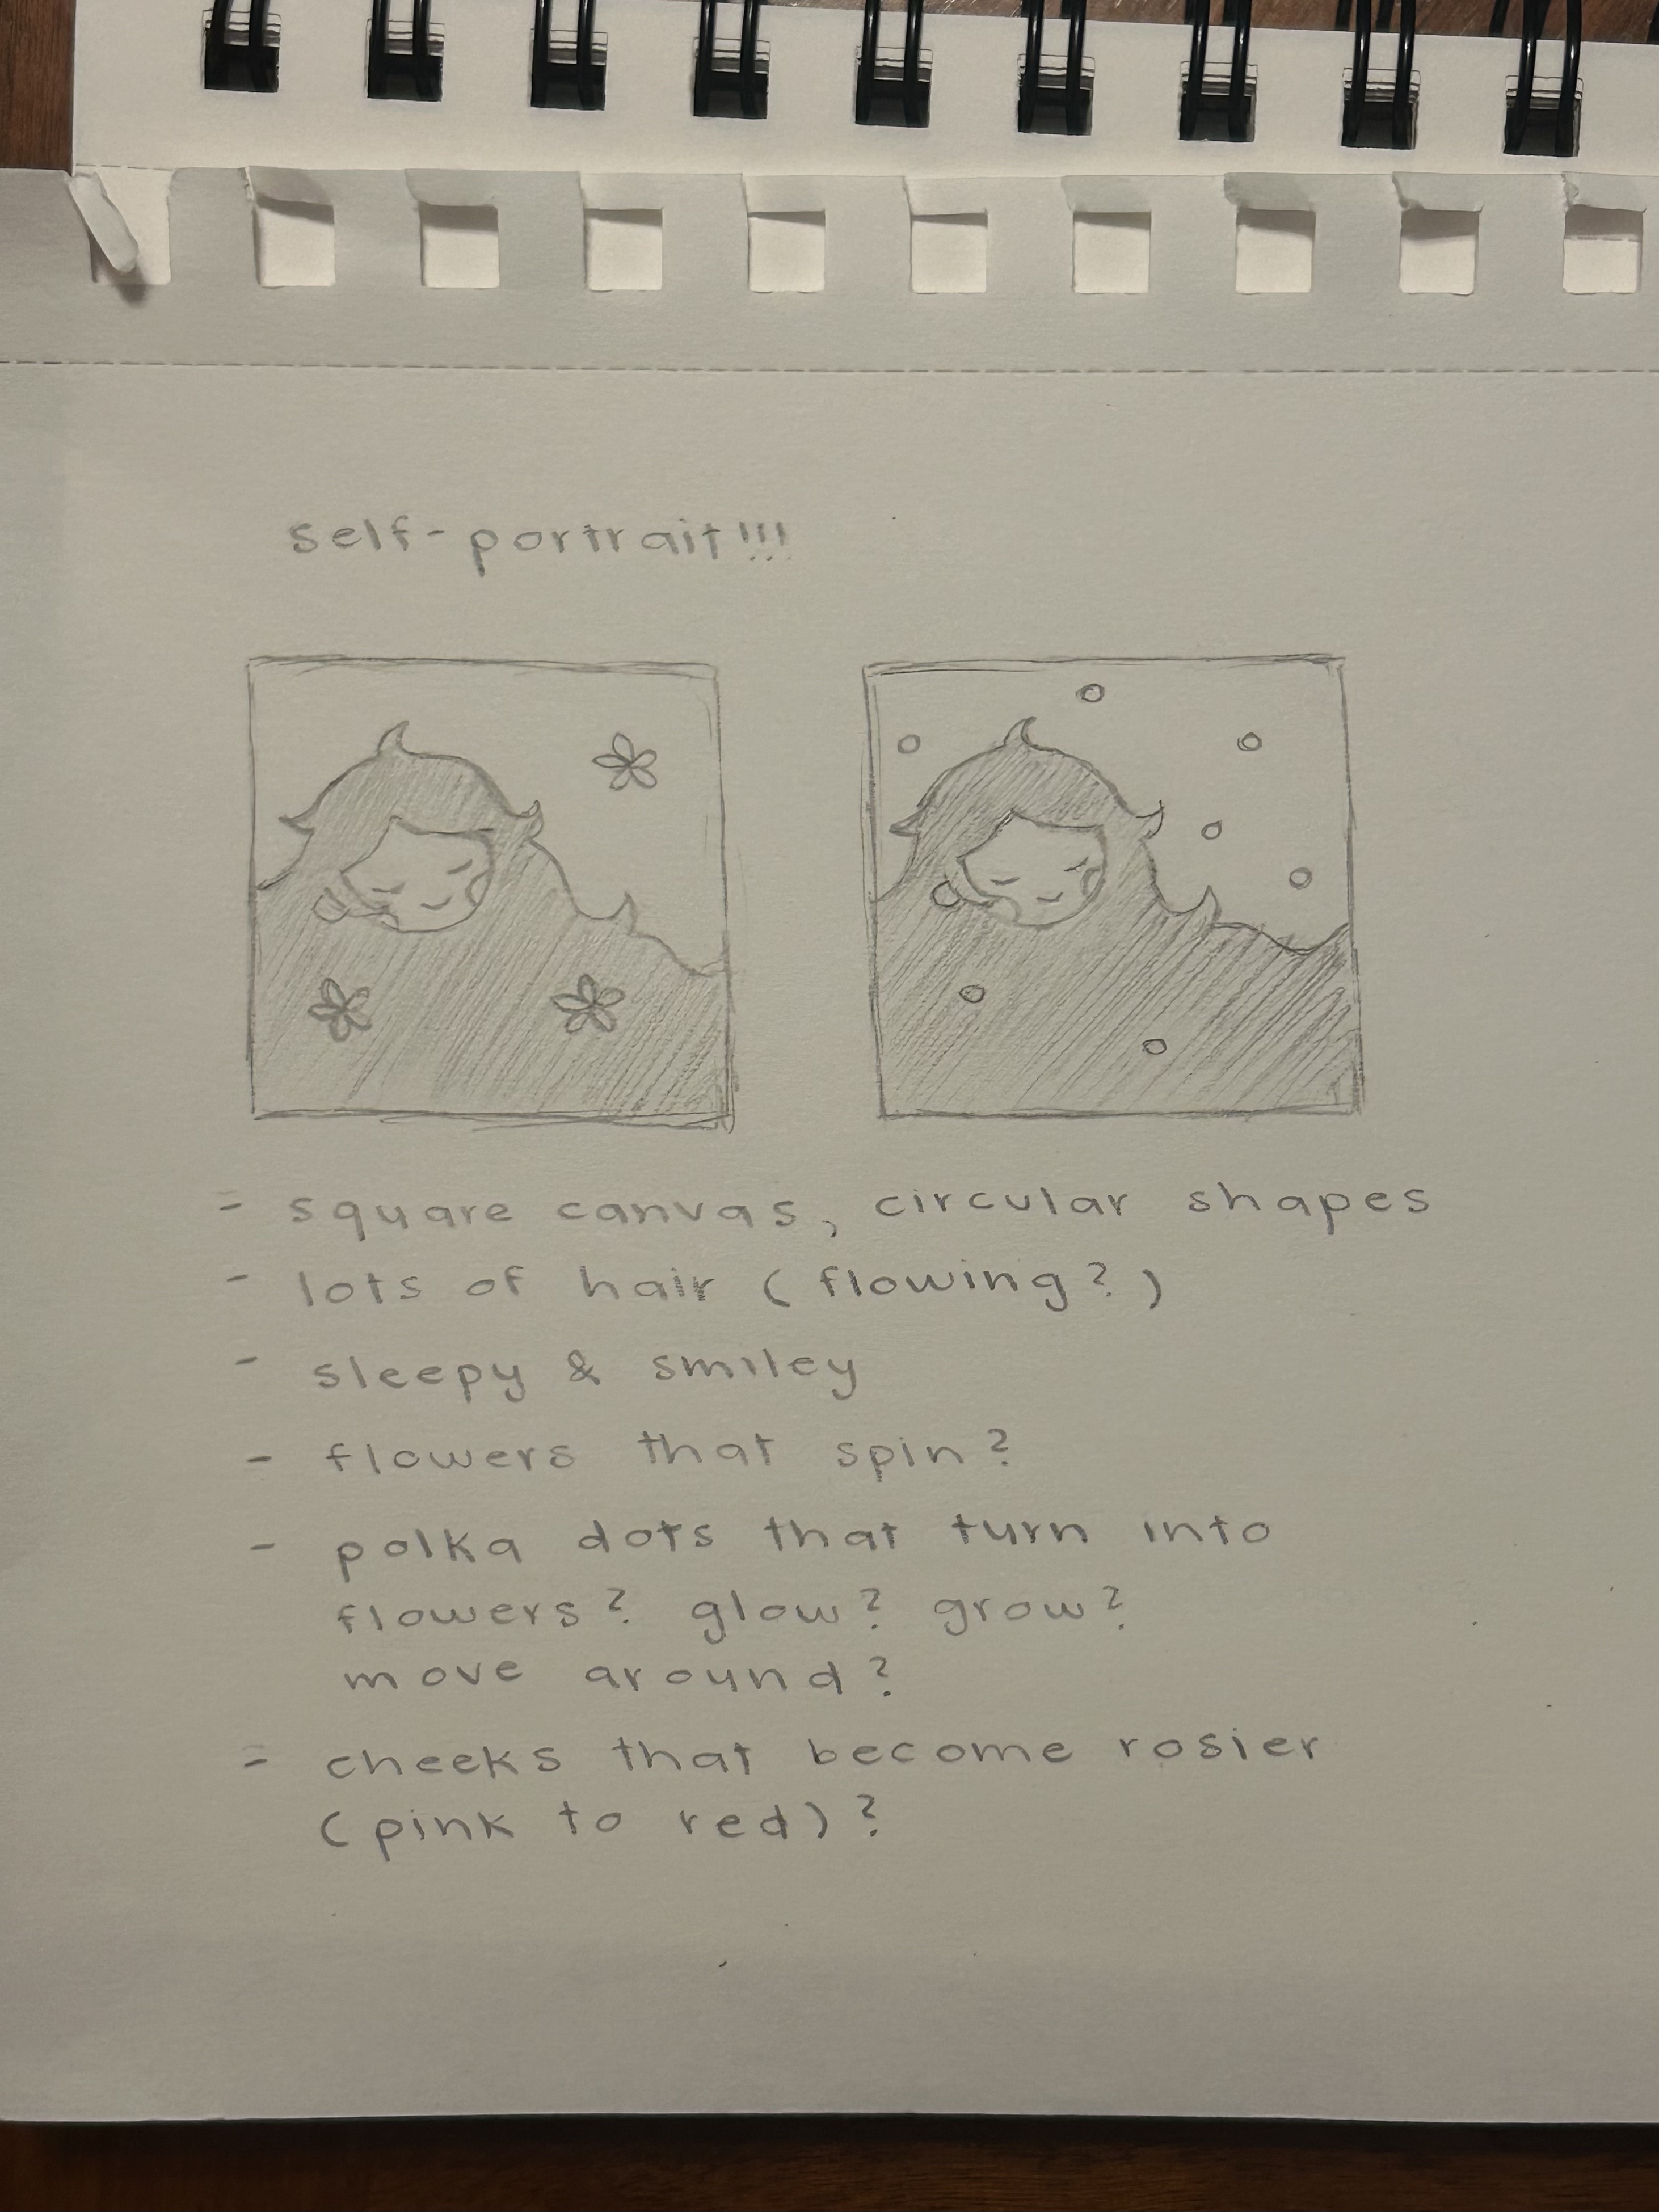 self-portrait!!!
- square canvas, circular shapes
- lots of hair (flowing?)
- sleepy & smiley
- flowers that spin?
- polka dots that turn into
flowers? glow? grow?
move around?
- cheeks that become rosier
(pink to red)?